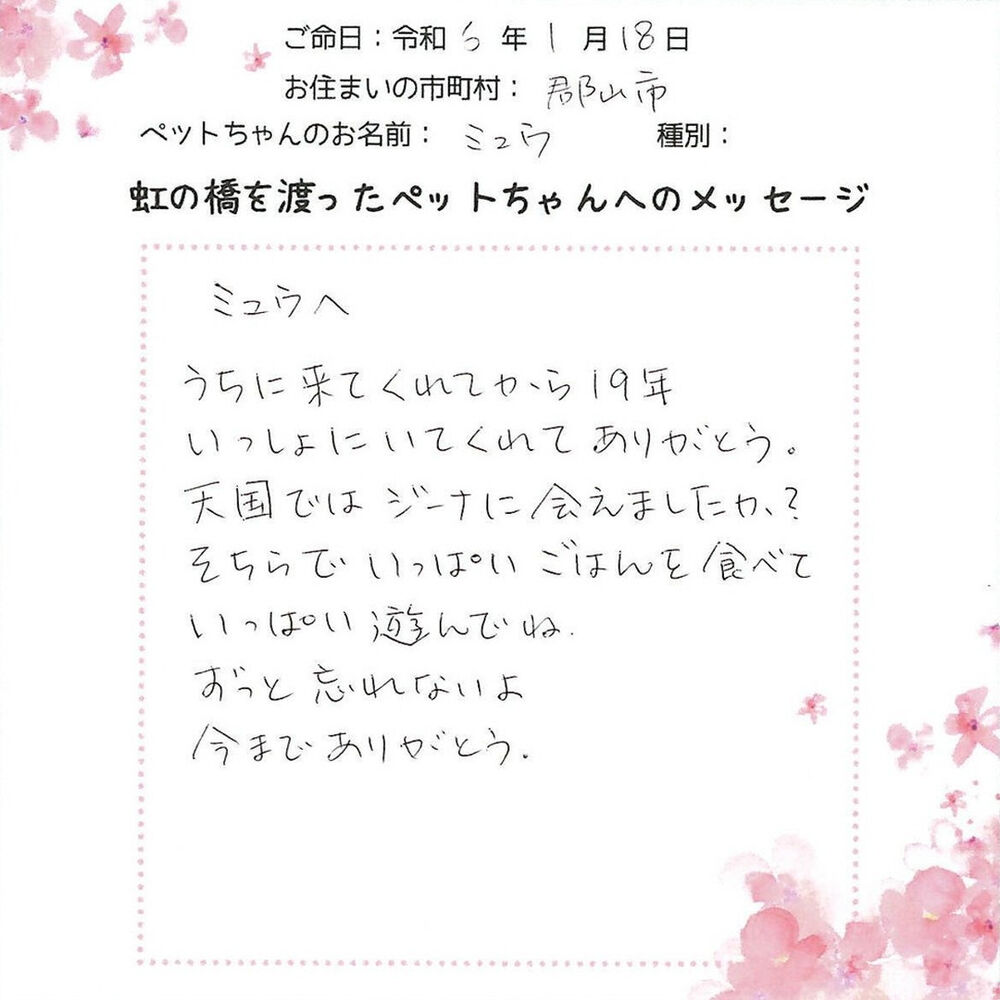 ご命日：令和 6 年 1 月 18 日
お住まいの市町村： 郡山市
ペットちゃんのお名前： ミュウ 種別：
虹の橋を渡ったペットちゃんへのメッセージ
ミュウへ
うちに来てくれてから19年
いっしょにいてくれてありがとう。
天国ではジーナに会えましたか?
そちらでいっぱいごはんを食べて
いっぱい遊んでね.
ずっと忘れないよ
今までありがとう.